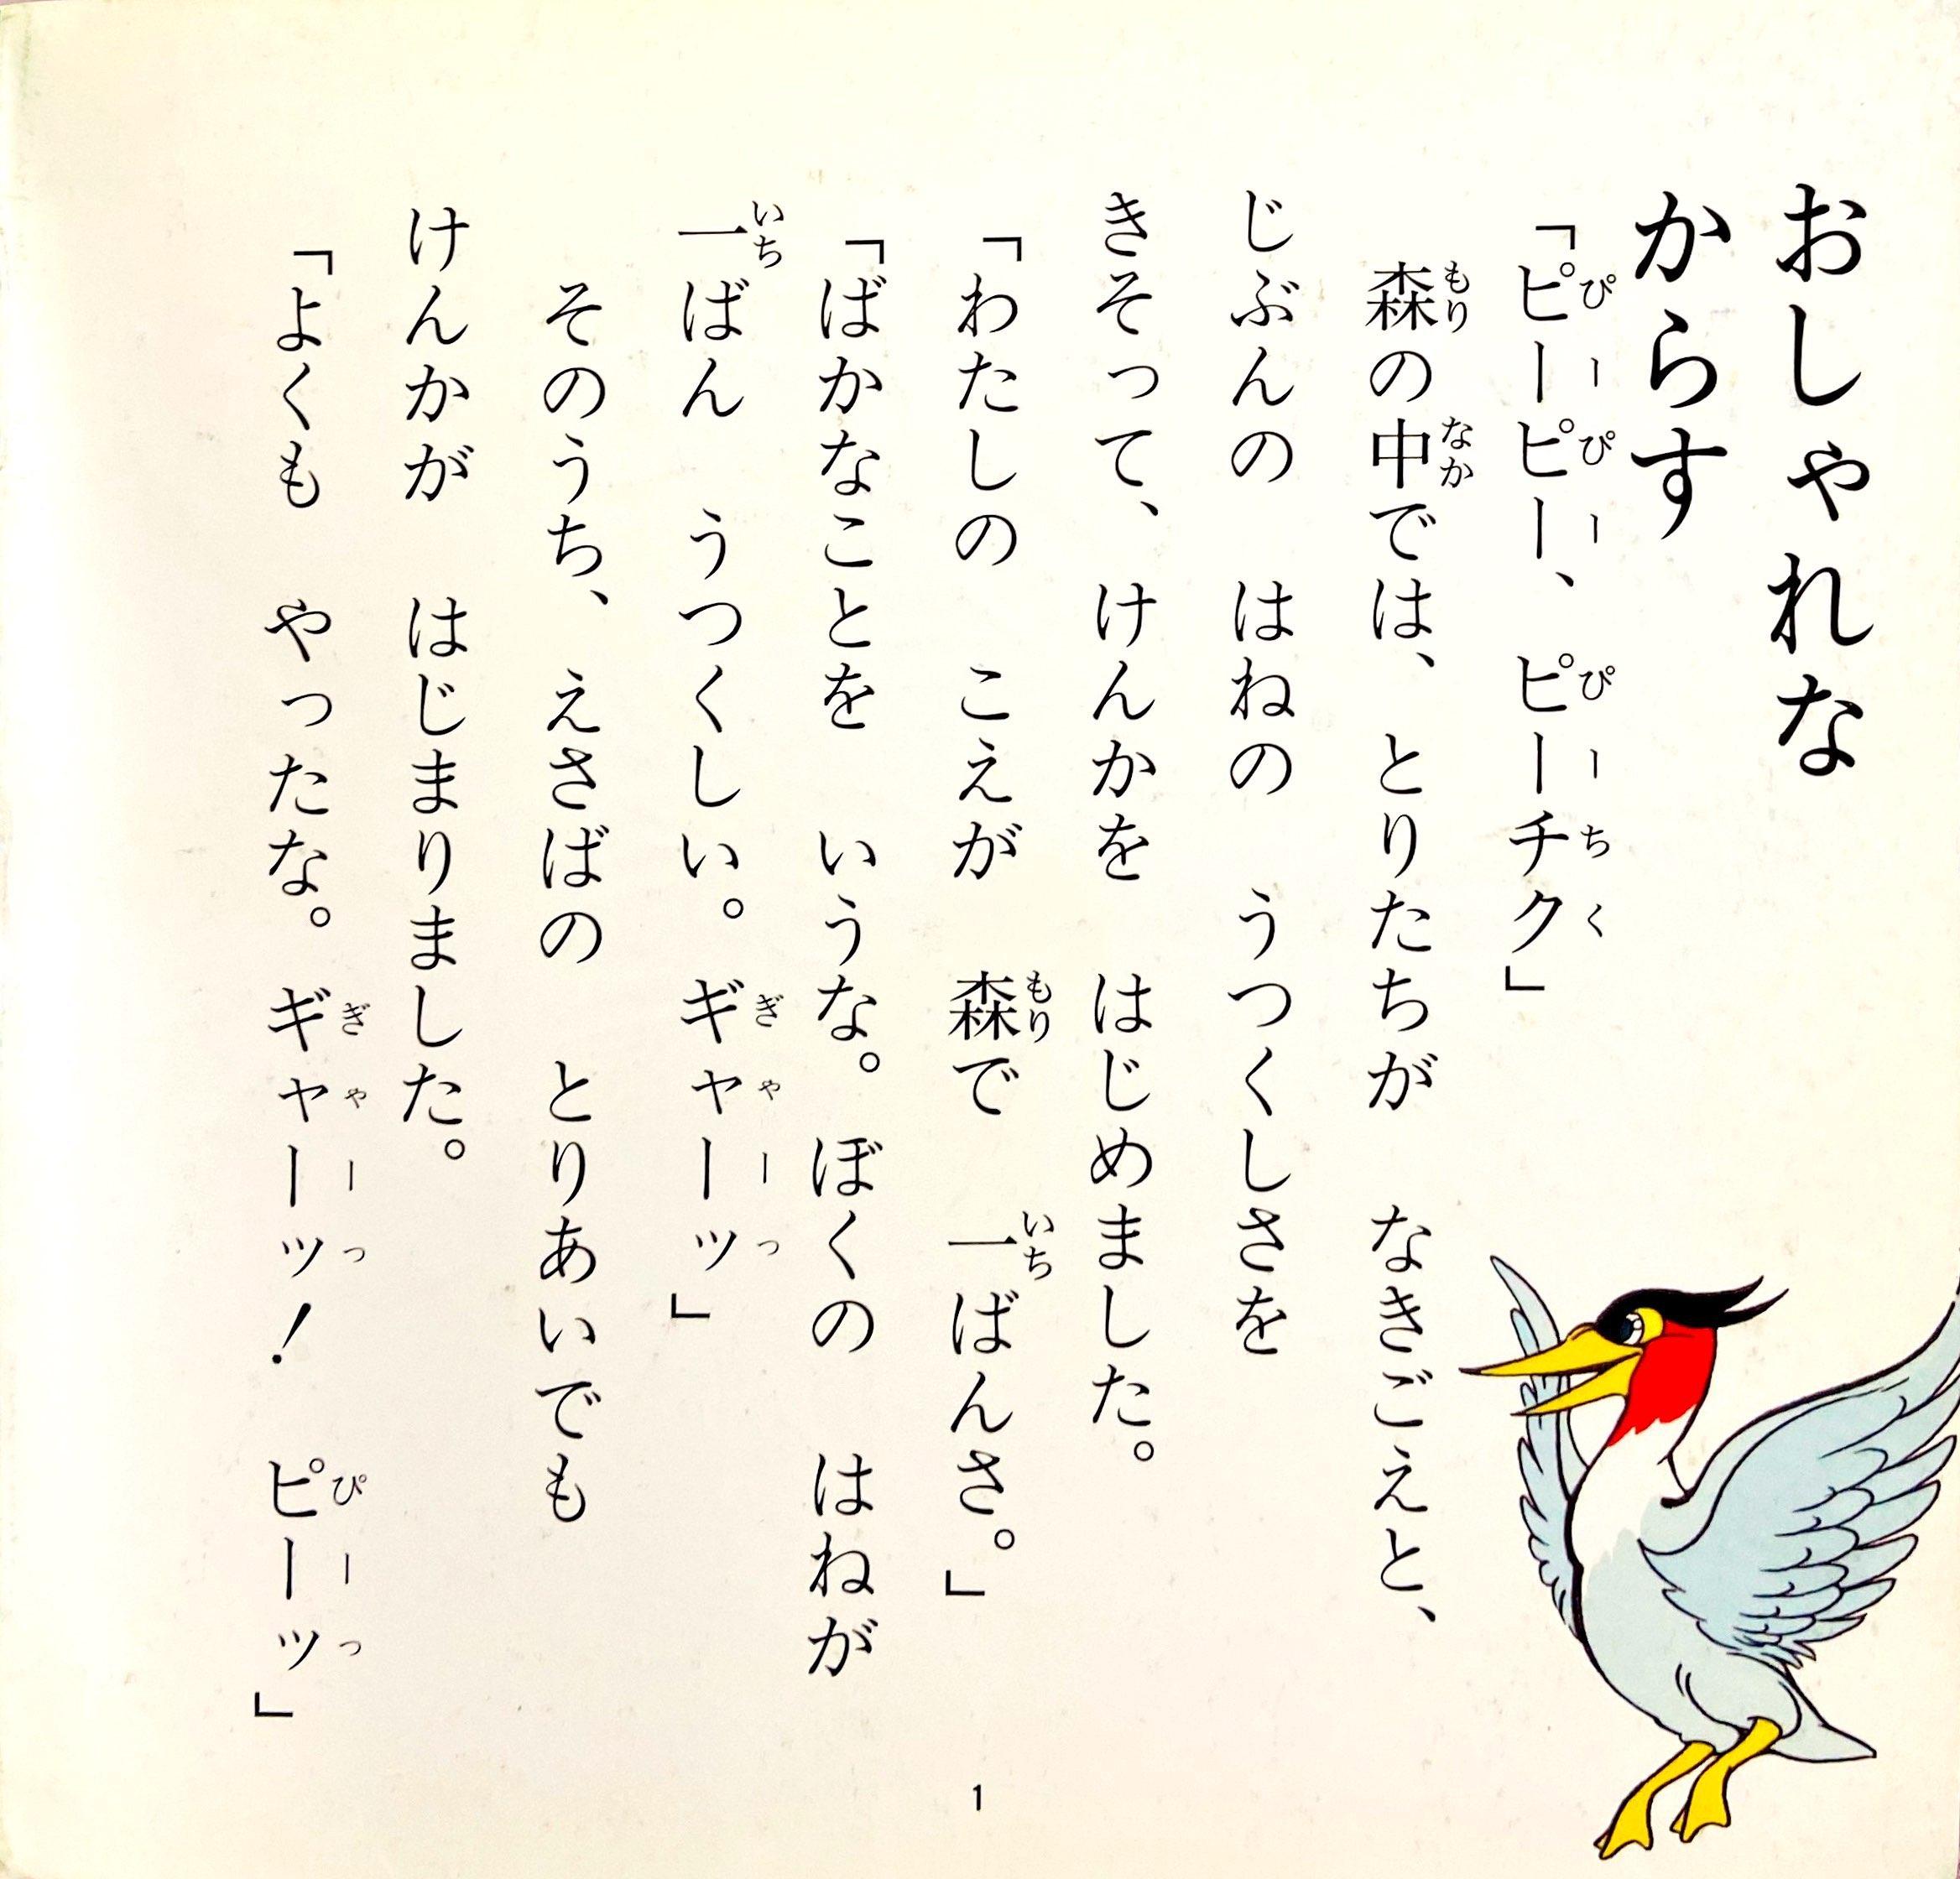 おしゃれな
からす
「ピーピー、ピーチク」
森の中では、とりたちが　なきごえと、
じぶんの　はねの　うつくしさを
きそって、けんかを　はじめました。
「わたしの　こえが　森で　一ばんさ。」
「ばかなことを　いうな。ぼくの　はねが
一ばん　うつくしい。ギャーッ」
そのうち、えさばの　とりあいでも
けんかが　はじまりました。
「よくも　やったな。ギャーッ！　ピーッ」
1